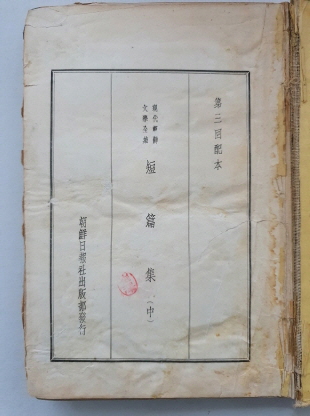 第三回配本
現代朝鮮
文學全集
短篇集(中)
朝鮮日報社出版部發行